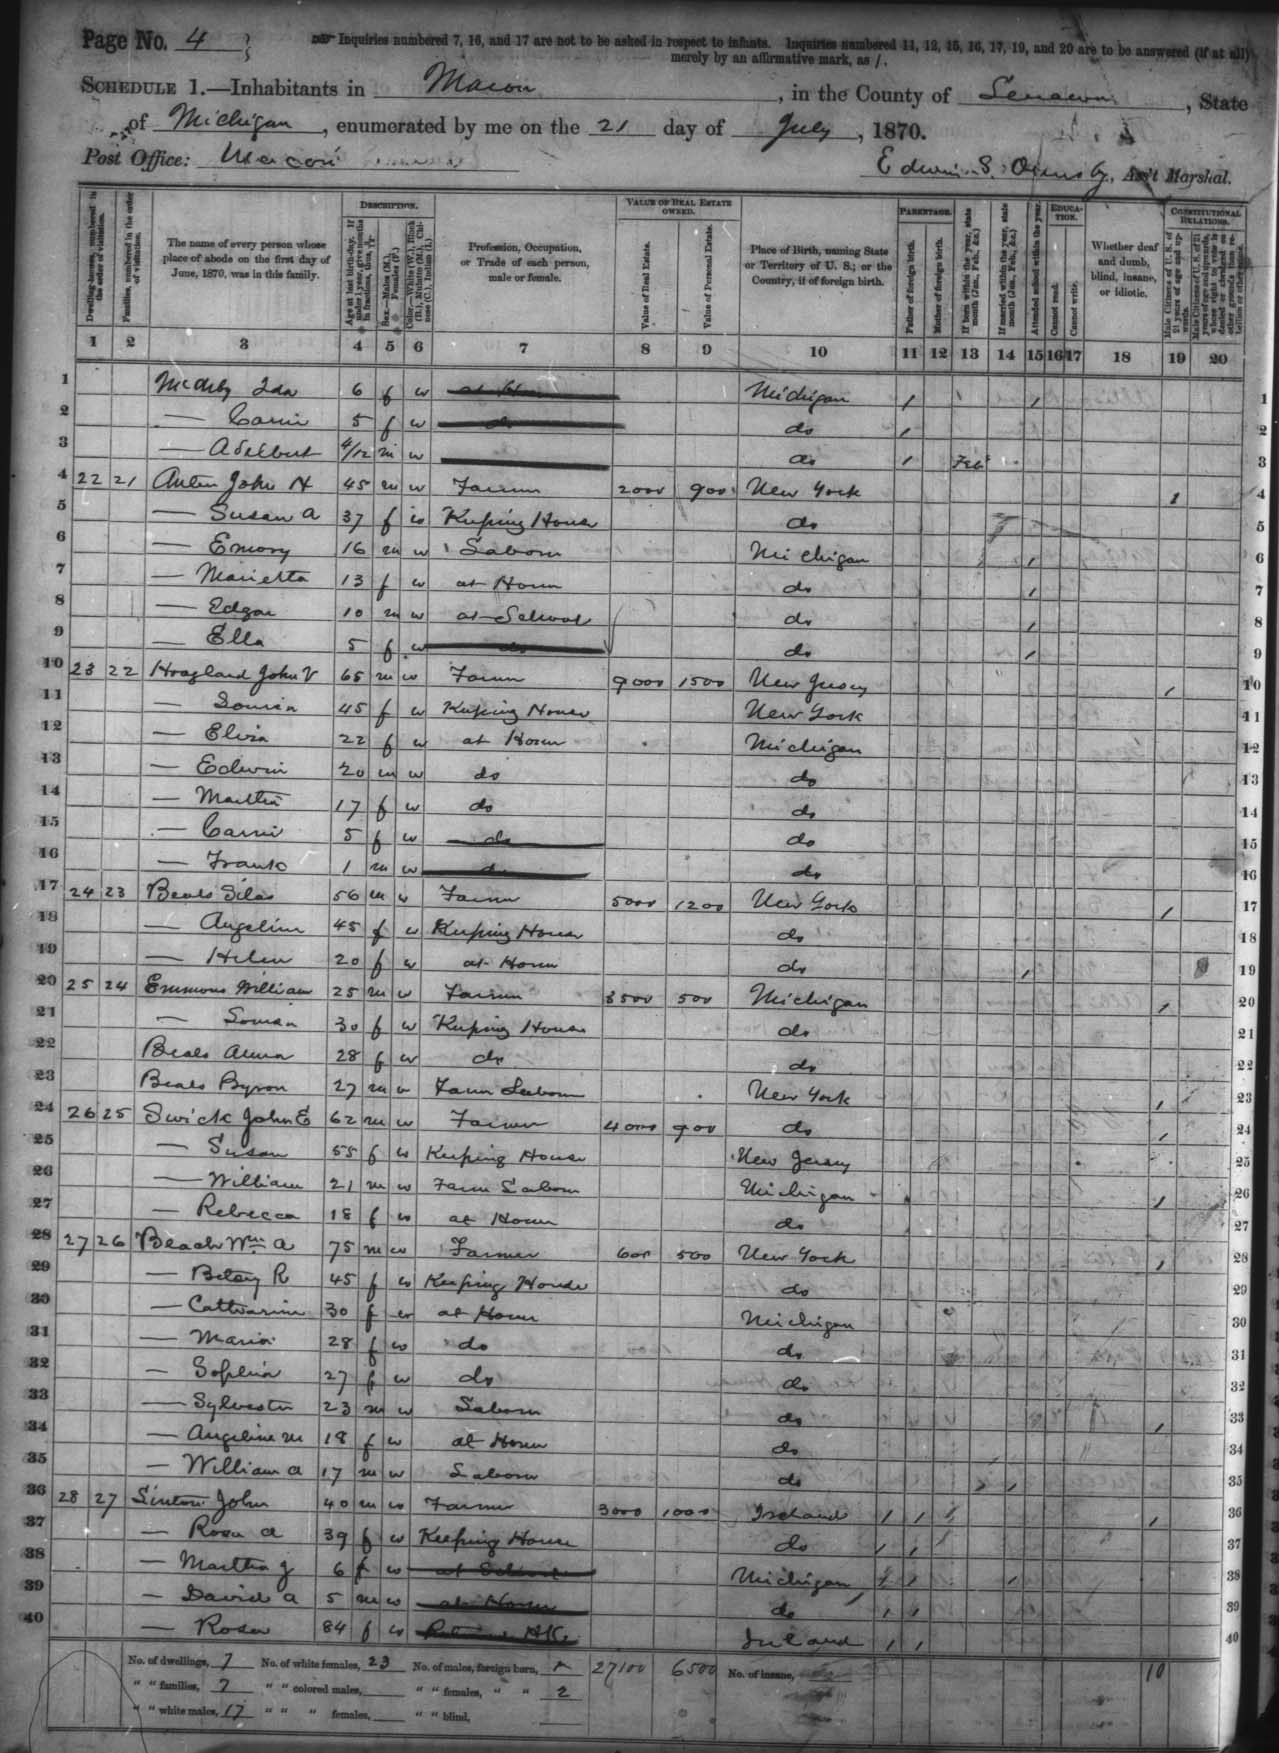 Page No. 4
Inquiries numbered 7, 16, and 17 are not to be asked in respect to infants. Inquiries numbered 11, 12, 15, 16, 17, 19, and 20 are to be answered (if at all)
merely by an affirmative mark, as /.
SCHEDULE 1.—Inhabitants in Macon, in the County of Lenawee, State
of Michigan, enumerated by me on the 21 day of July, 1870.
Post Office: Macon
Edwin S. Ormsby, Ass't Marshal.
Dwelling-houses, numbered in the order of visitation.
Families, numbered in the order of visitation.
The name of every person whose place of abode on the first day of June, 1870, was in this family.
DESCRIPTION.
Age at last birth-day. If under 1 year, give months in fractions, thus,
Sex.—Males (M.), Females (F.)
Color.—White (W.), Black (B.), Mulatto (M.), Chinese (C.), Indian (I.)
Profession, Occupation, or Trade of each person, male or female.
VALUE OF REAL ESTATE OWNED.
Value of Real Estate.
Value of Personal Estate.
Place of Birth, naming State or Territory of U. S.; or the Country, if of foreign birth.
PARENTAGE.
Father of foreign birth.
Mother of foreign birth.
If born within the year, state month (Jan., Feb., &c.)
If married within the year, state month (Jan., Feb., &c.)
Attended school within the year.
EDUCATION.
Cannot read.
Cannot write.
Whether deaf and dumb, blind, insane, or idiotic.
CONSTITUTIONAL RELATIONS.
Male Citizens of U. S. of 21 years of age and upwards.
1 2 3 4 5 6 7 8 9 10 11 12 13 14 15 16 17 18 19 20
1 Ida 6 f w at Home Michigan / / 1
2 — Carrie 5 f w do do / 2
3 — Adelbert 4/12 m w do / Feb 3
4 22 21 Auten John H 45 m w Farmer 2000 900 New York / 4
5 — Susan A 37 f w Keeping House do 5
6 — Emory 16 m w Laborer Michigan / 6
7 — Marietta 13 f w at Home do / 7
8 — Edgar 10 m w at School do / 8
9 — Ella 5 f w do do / 9
10 23 22 Hoagland John V 65 m w Farmer 9000 1500 New Jersey / 10
11 — Louisa 45 f w Keeping House New York 11
12 — Eliza 22 f w at Home Michigan 12
13 — Edwin 20 m w do do 13
14 — Martha 17 f w do do 14
15 — Carrie 5 f w do do 15
16 — Frank 1 m w do do 16
17 24 23 Beals Silas 56 m w Farmer 5000 1200 New York / 17
18 — Angeline 45 f w Keeping House do 18
19 — Helen 20 f w at Home do / 19
20 25 24 Emmons William 25 m w Farmer 3500 500 Michigan / 20
21 — Louisa 30 f w Keeping House do 21
22 Beals Anna 28 f w do do 22
23 Beals Byron 27 m w Farm Laborer New York / 23
24 26 25 Swick John E 62 m w Farmer 4000 900 do / 24
25 — Susan 55 f w Keeping House New Jersey 25
26 — William 21 m w Farm Laborer Michigan / 26
27 — Rebecca 18 f w at Home do 27
28 27 26 Beach Wm A 75 m w Farmer 600 500 New York / 28
29 — Betsy R 45 f w Keeping House do 29
30 — Catharine 30 f w at Home Michigan 30
31 — Maria 28 f w do do 31
32 — Sophia 27 f w do do 32
33 — Sylvester 23 m w Laborer do / 33
34 — Angeline M 18 f w at Home do 34
35 — William A 17 m w Laborer do / 35
36 28 27 Linton John 40 m w Farmer 3000 1000 Ireland / / / 36
37 — Rosa A 39 f w Keeping House do / / 37
38 — Martha J 6 f w at School Michigan / / / 38
39 — David A 5 m w at Home do / / 39
40 — Rosa 84 f w Ireland / / 40
No. of dwellings, 7 No. of white females, 23 No. of males, foreign born, 27100 6500 No. of insane, 10
" " families, 7 " " colored males, " " females, " " 2
" " white males, 17 " " " females, " " blind,